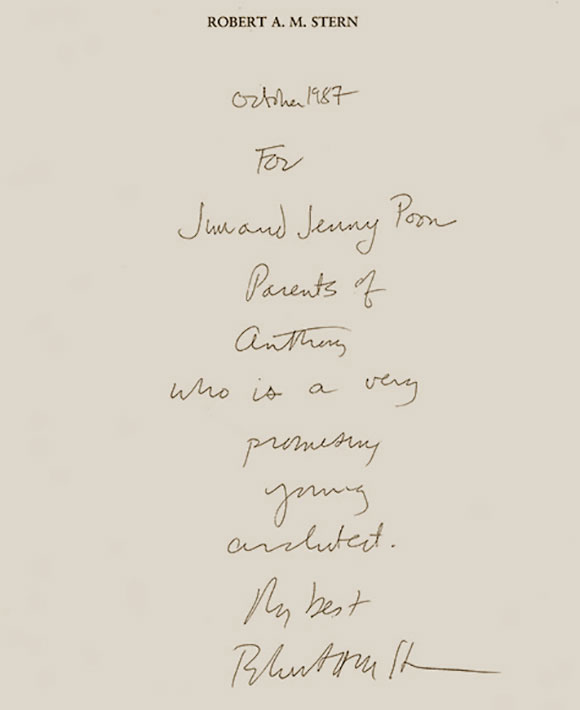 ROBERT A. M. STERN
October 1987
For
Jim and Jenny Poon
Parents of
Anthony
who is a very
promising
young
architect.
My best
Robert A M Stern